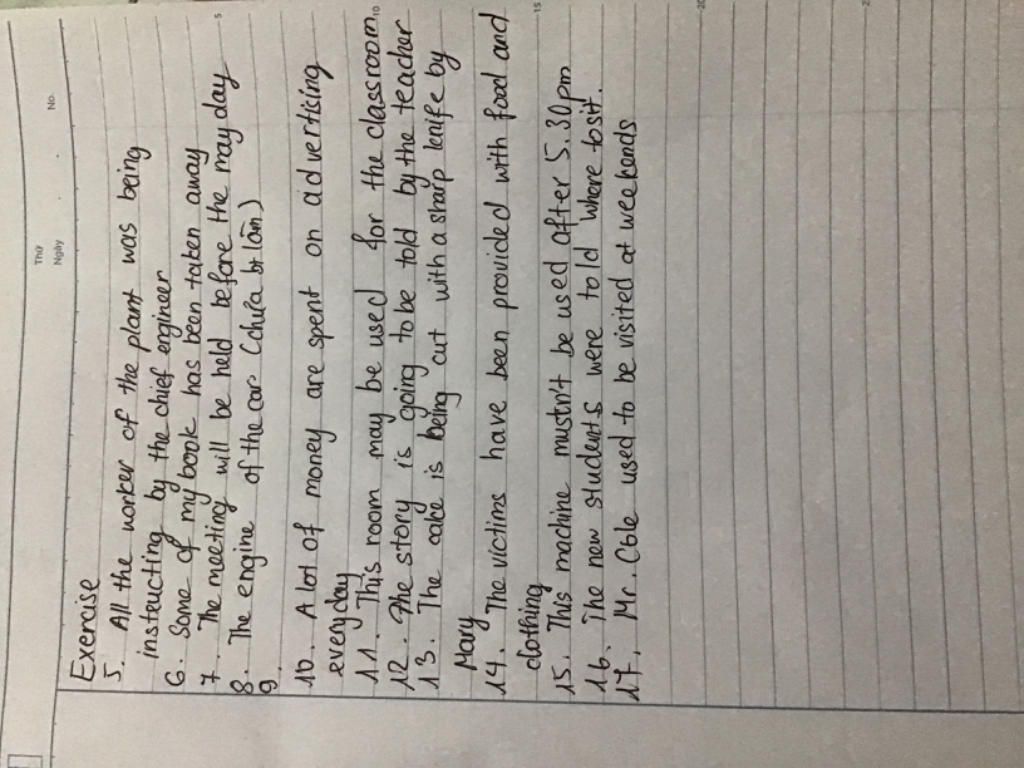 Thứ
Ngày
No.
Exercise
5. All the worker of the plant was being
instructing by the chief engineer
6. Some of my book has been taken away
7. The meeting will be held before the may day
8. The engine of the car (chưa bt làm)
9.
10. A lot of money are spent on advertising
everyday
11. This room may be used for the classroom
12. The story is going to be told by the teacher
13. The cake is being cut with a sharp knife by
Mary
14. The victims have been provided with food and
clothing
15. This machine mustn't be used after 5.30pm
16. The new students were told where to sit.
17. Mr. Cole used to be visited at weekends
5
10
15
20